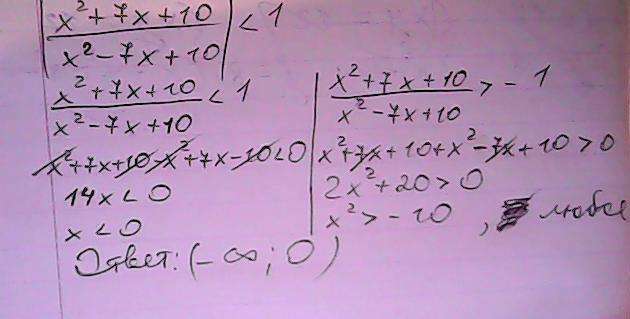 |(x²+7x+10)/(x²-7x+10)| < 1
(x²+7x+10)/(x²-7x+10) < 1
x²+7x+10-x²+7x-10<0
14x<0
x<0
Ответ: (-∞; 0)
(x²+7x+10)/(x²-7x+10) > -1
x²+7x+10+x²-7x+10>0
2x²+20>0
x²>-10, любое